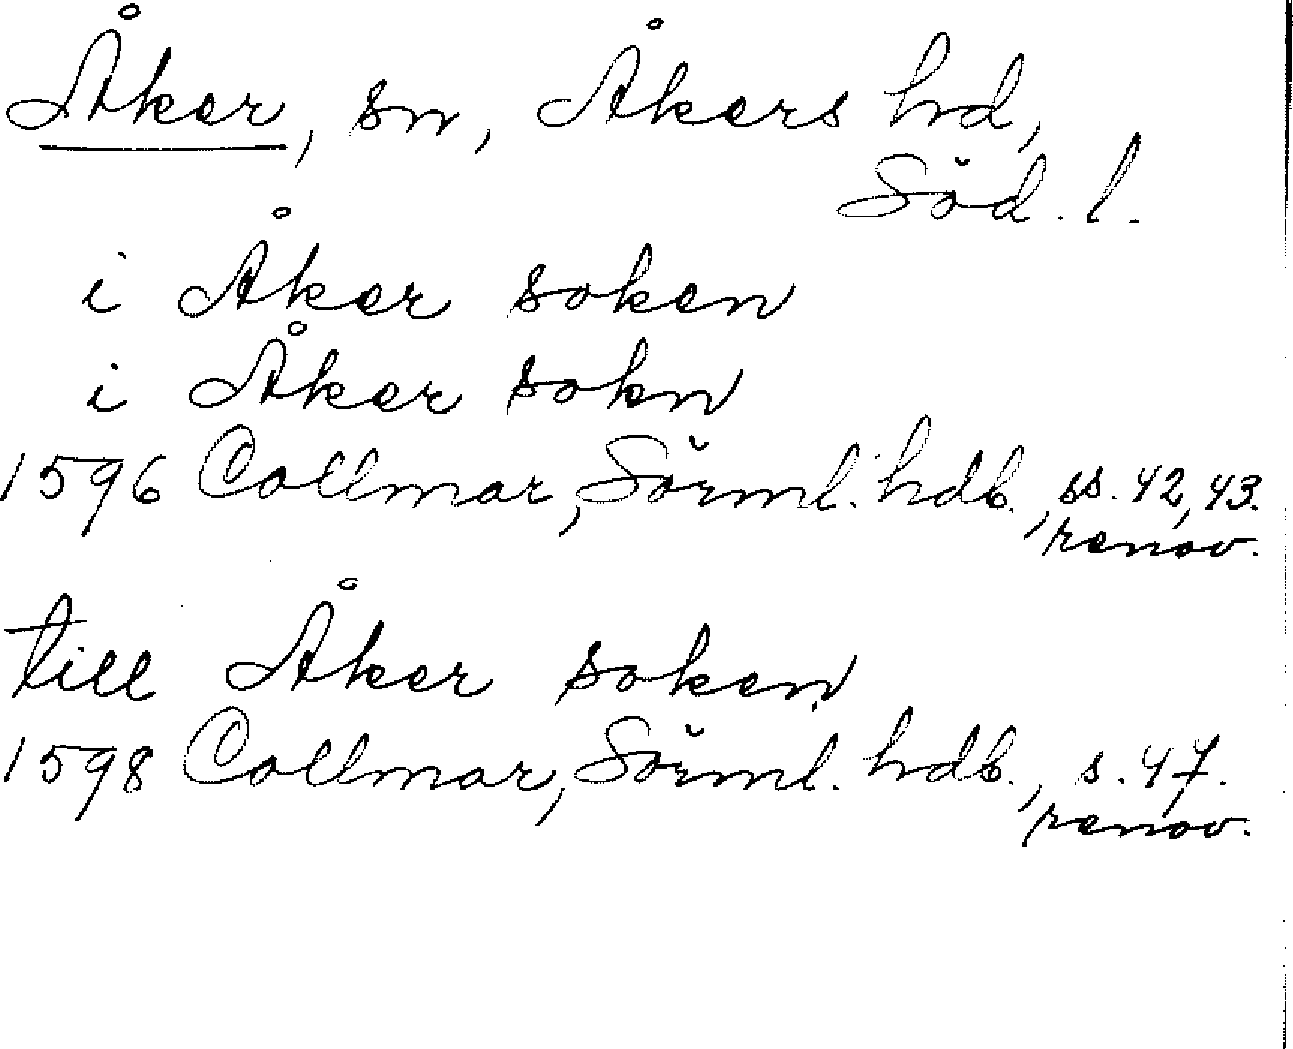 Åker, sn, Åkers hd,
Söd. l.
i Åker soken
i Åker sokn
1596 Collmar, Sörml. hdb., ss. 42, 43.
renov.
till Åker soken
1598 Collmar, Sörml. hdb., s. 47.
renov.